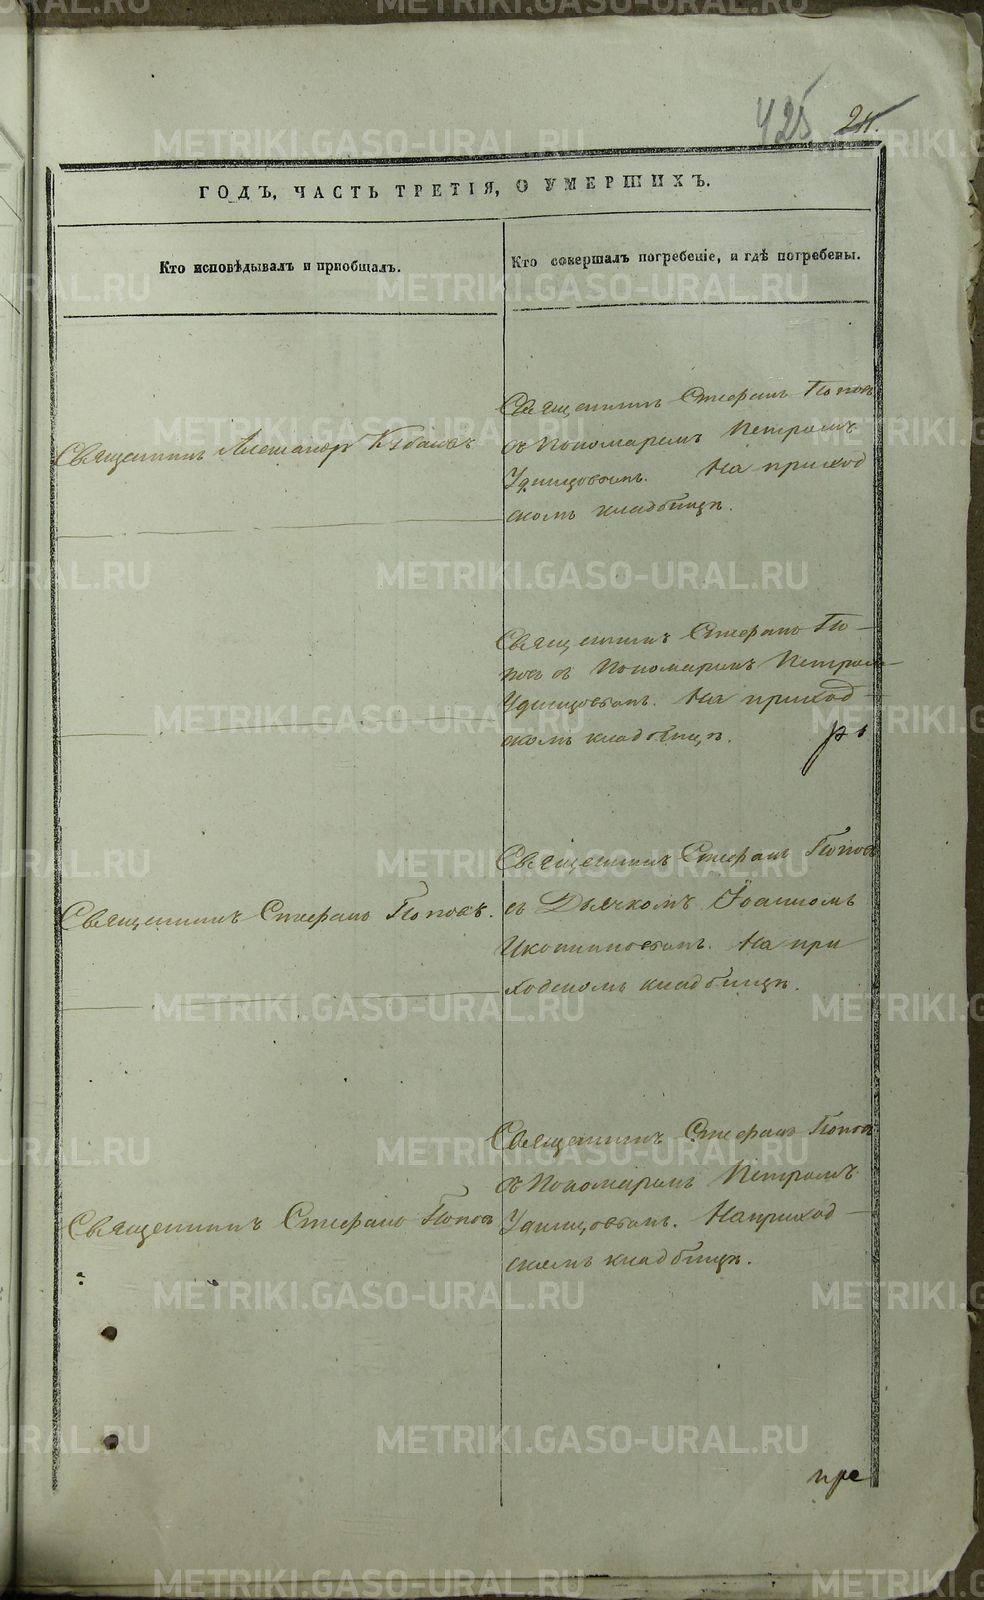 425 24.
ГОДЪ, ЧАСТЬ ТРЕТІЯ, О УМЕРШИХЪ.
Кто исповѣдывалъ и пріобщалъ.
Кто совершалъ погребеніе, и гдѣ погребены.
Священникъ Александръ
Священникъ Стефанъ Поповъ
съ Пономаремъ Петромъ
Удинцовымъ. На приход
скомъ кладбищѣ.
Священникъ Стефанъ По-
повъ съ Пономаремъ Петромъ
Удинцовымъ. На приход-
скомъ кладбищѣ.
Священникъ Стефанъ Поповъ.
Священникъ Стефанъ Поповъ
съ Дьячкомъ Іоанномъ
Иконниковымъ. На при
ходскомъ кладбищѣ.
Священникъ Стефанъ Поповъ
Священникъ Стефанъ Поповъ
съ Пономаремъ Петромъ
Удинцовымъ. На приход-
скомъ кладбищѣ.
пре
METRIKI.GASO-URAL.RU